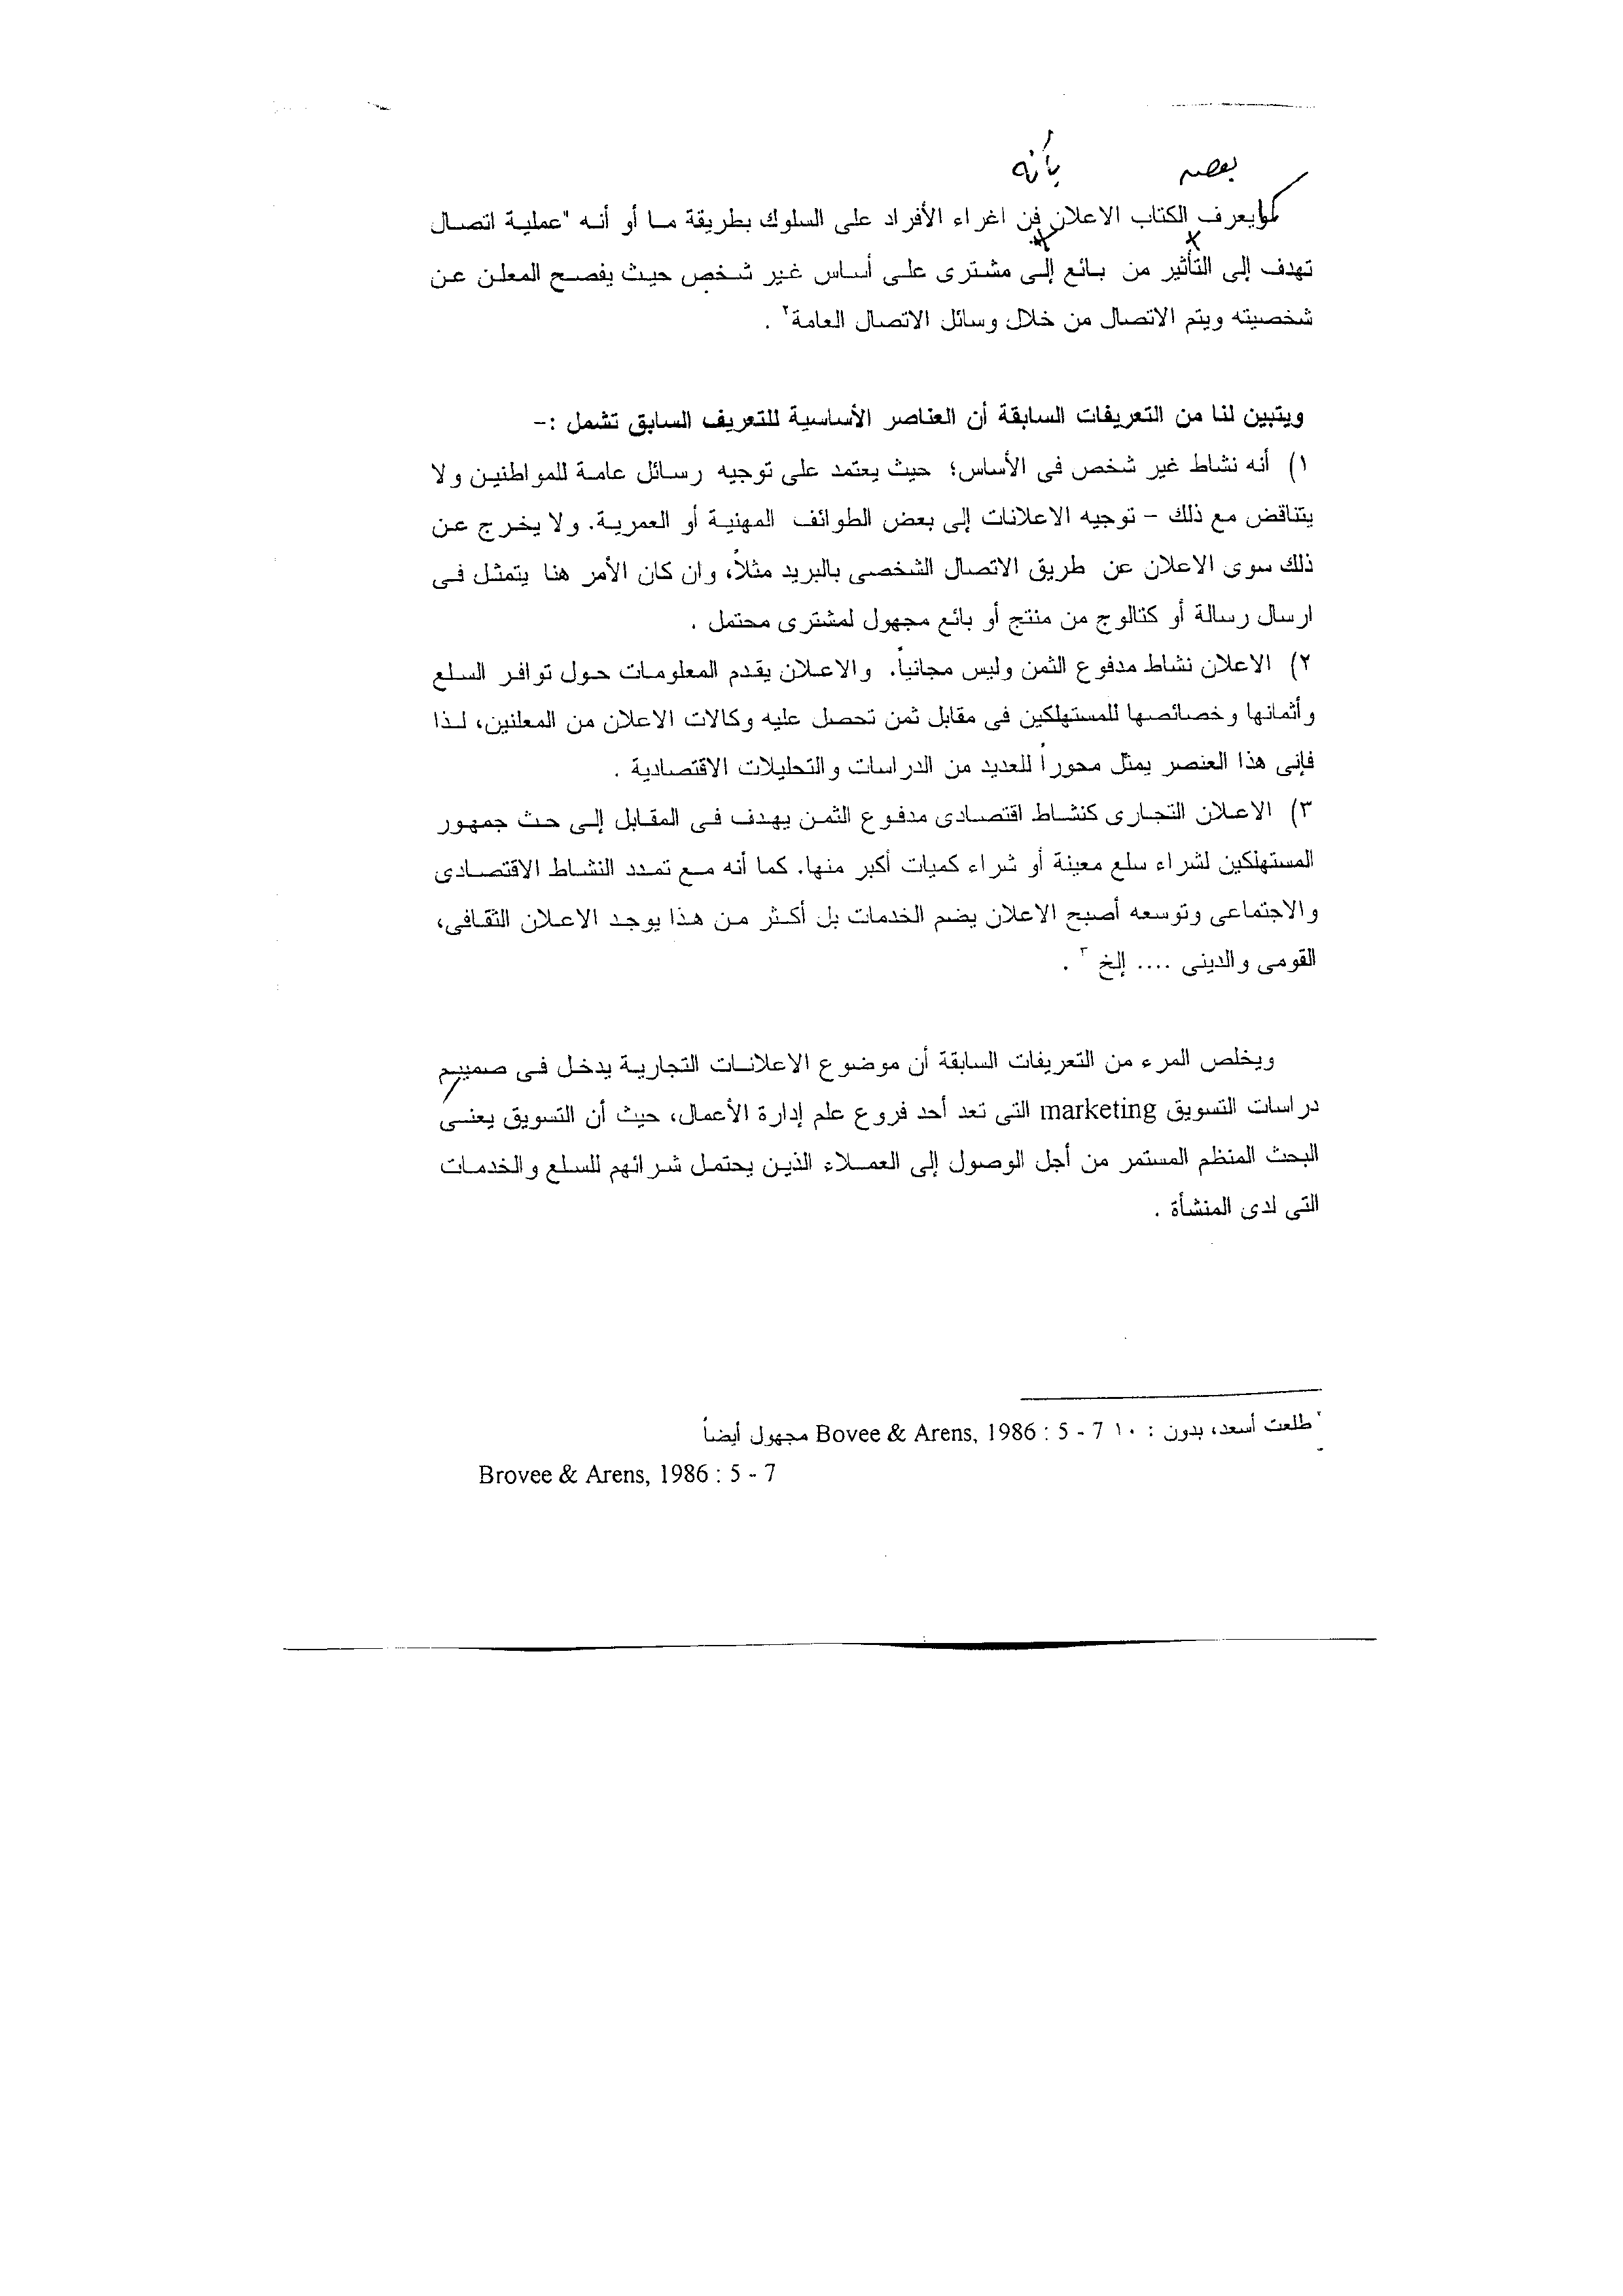 بعض
بأنه
كما يعرف الكتاب الاعلان فن اغراء الأفراد على السلوك بطريقة ما أو أنه "عملية اتصال
تهدف إلى التأثير من بائع إلى مشترى على أساس غير شخص حيث يفصح المعلن عن
شخصيته ويتم الاتصال من خلال وسائل الاتصال العامة٢ .
ويتبين لنا من التعريفات السابقة أن العناصر الأساسية للتعريف السابق تشمل :-
١) أنه نشاط غير شخص فى الأساس؛ حيث يعتمد على توجيه رسائل عامة للمواطنين ولا
يتناقض مع ذلك – توجيه الاعلانات إلى بعض الطوائف المهنية أو العمرية. ولا يخرج عن
ذلك سوى الاعلان عن طريق الاتصال الشخصى بالبريد مثلاً، وان كان الأمر هنا يتمثل فى
ارسال رسالة أو كتالوج من منتج أو بائع مجهول لمشترى محتمل .
٢) الاعلان نشاط مدفوع الثمن وليس مجانياً. والاعلان يقدم المعلومات حول توافر السلع
وأثمانها وخصائصها للمستهلكين فى مقابل ثمن تحصل عليه وكالات الاعلان من المعلنين، لذا
فإنى هذا العنصر يمثل محوراً للعديد من الدراسات والتحليلات الاقتصادية .
٣) الاعلان التجارى كنشاط اقتصادى مدفوع الثمن يهدف فى المقابل إلى حث جمهور
المستهلكين لشراء سلع معينة أو شراء كميات أكبر منها. كما أنه مع تمدد النشاط الاقتصادى
والاجتماعى وتوسعه أصبح الاعلان يضم الخدمات بل أكثر من هذا يوجد الاعلان الثقافى،
القومى والدينى .... إلخ ٣ .
ويخلص المرء من التعريفات السابقة أن موضوع الاعلانات التجارية يدخل فى صمييم
دراسات التسويق marketing التى تعد أحد فروع علم إدارة الأعمال، حيث أن التسويق يعنى
البحث المنظم المستمر من أجل الوصول إلى العملاء الذين يحتمل شرائهم للسلع والخدمات
التى لدى المنشأة .
٢ طلعت أسعد، بدون : ١٠ Bovee & Arens, 1986 : 5 - 7 مجهول أيضاً
Brovee & Arens, 1986 : 5 - 7